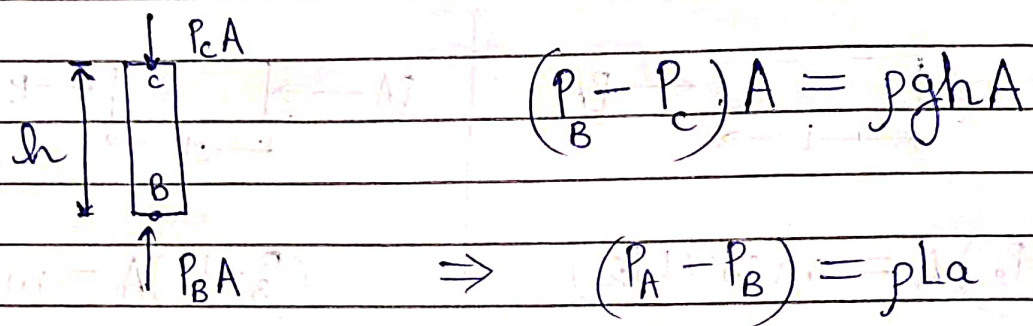 P_C A
C
(P_B - P_C) A = ρghA
h
B
P_B A ⇒ (P_A - P_B) = ρLa